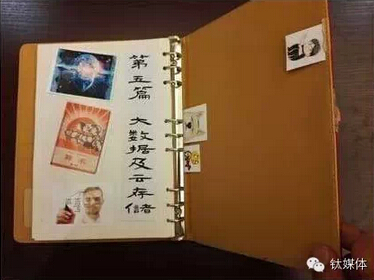 第五篇 大数据及云存儲
钛媒体